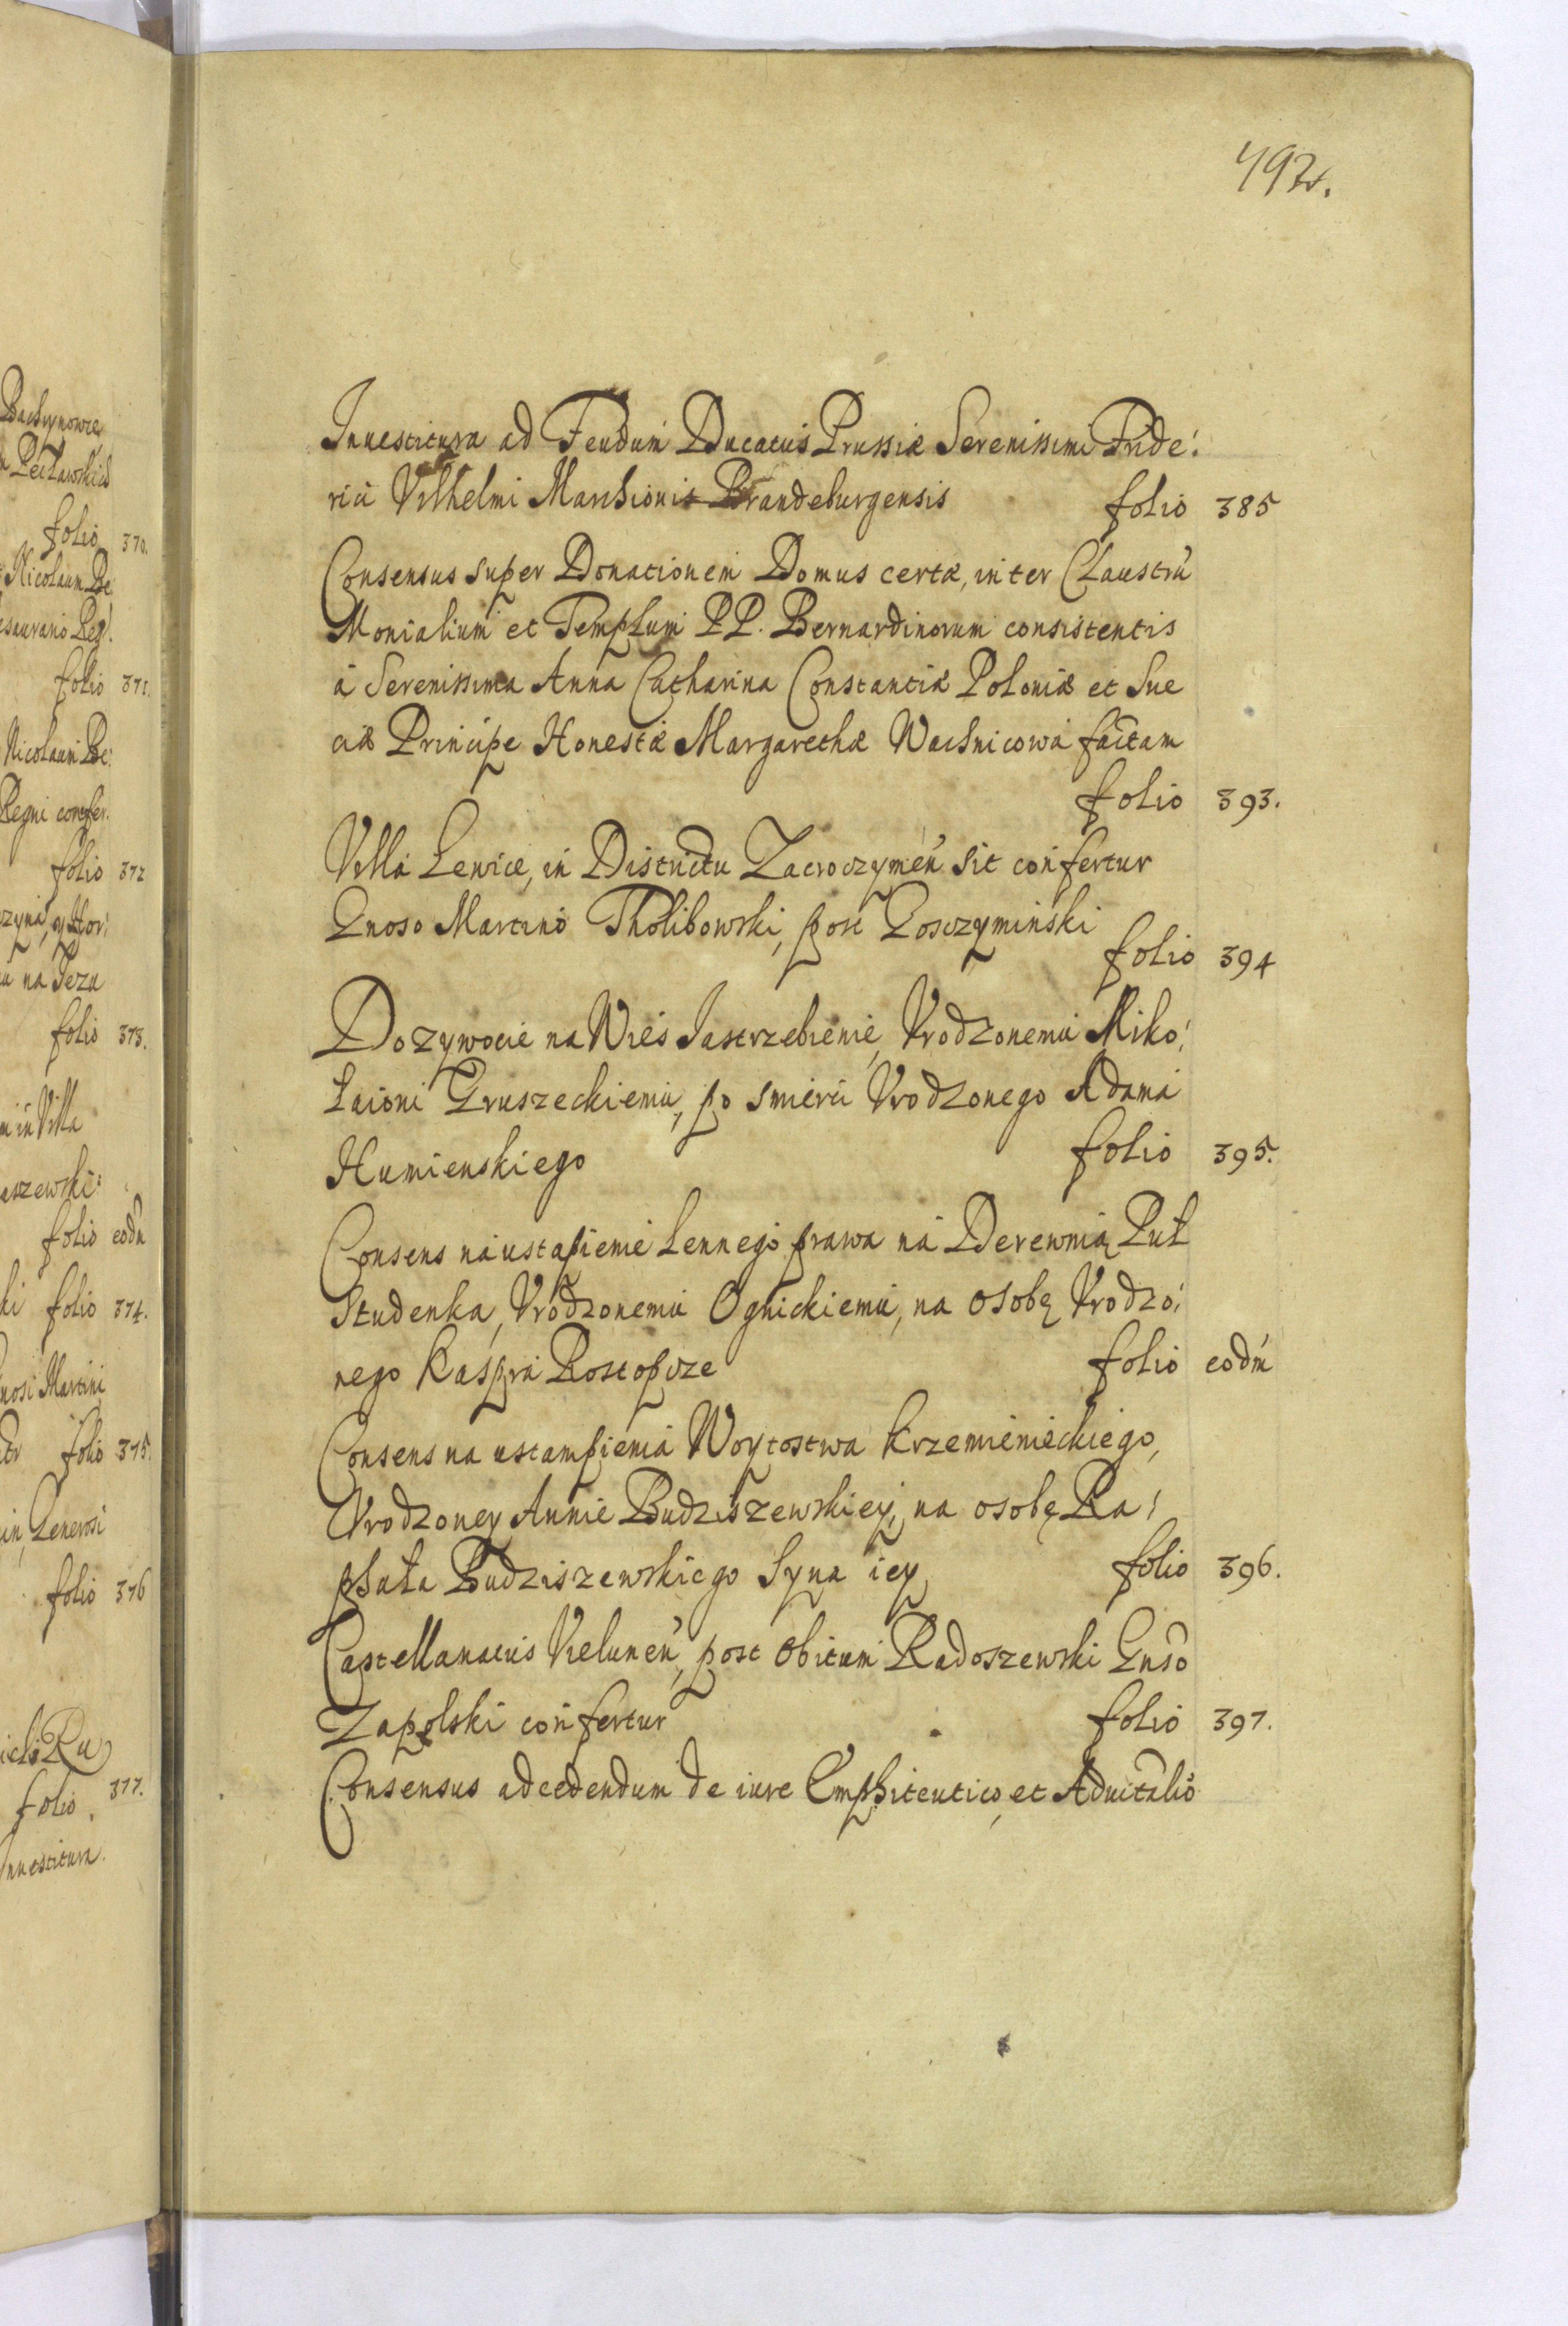 Bachynowce
Peczławskich
folio 370.
Nicolaum Be
esaurario Reg:
folio 371.
Nicolaum Be:
Regni confer.
folio 372
czyna, y Hor:
na Jeza
folio 373.
in Villa
aszewski:
folio eodm̃
ki folio 374.
nosi Martini
folio 375.
Generosi
folio 376
folio. 377.
Inuestitura.
492.
Inuestitura ad Feudum Ducatus Prussiæ Serenissimi Fride:
rici Vilhelmi Marchionis Brandeburgensis folio 385
Consensus super Donationem Domus certæ, inter Claustrũ
Monialium et Templum PP. Bernardinorum consistentis
à Serenissima Anna Catharina Constantia Poloniæ et Sue
ciæ Principe Honestæ Margarethæ Wachnicowa factam
folio 393.
Villa Lewice, in Districtu Zacroczymeñ sit confertur
Gnoso Martino Tholibowski, post Goszczyminski
folio 394
Dozywocie na Wieś Jastrzebienie, Vrodzonemu Miko:
łaiowi Gruszeckiemu, po smierci Vrodzonego Adama
Humienskiego folio 395.
Consens na ustąpienie Lennego prawa na Derewnią Puł
Studenka, Vrodzonemu Ognickiemu, na osobę Vrodzo:
nego Kaspra Rostopcze folio eodm̃
Consens na ustampienia Woytostwa Krzemienieckiego,
Vrodzoney Annie Budziszewskiey, na osobę Ra:
phała Budziszewskiego Syna iey folio 396.
Castellanatus Vieluneñ, post obitum Radoszewski Gnso
Zapolski confertur folio 397.
Consensus ad cedendum de iure Emphiteutico, et Aduitalio